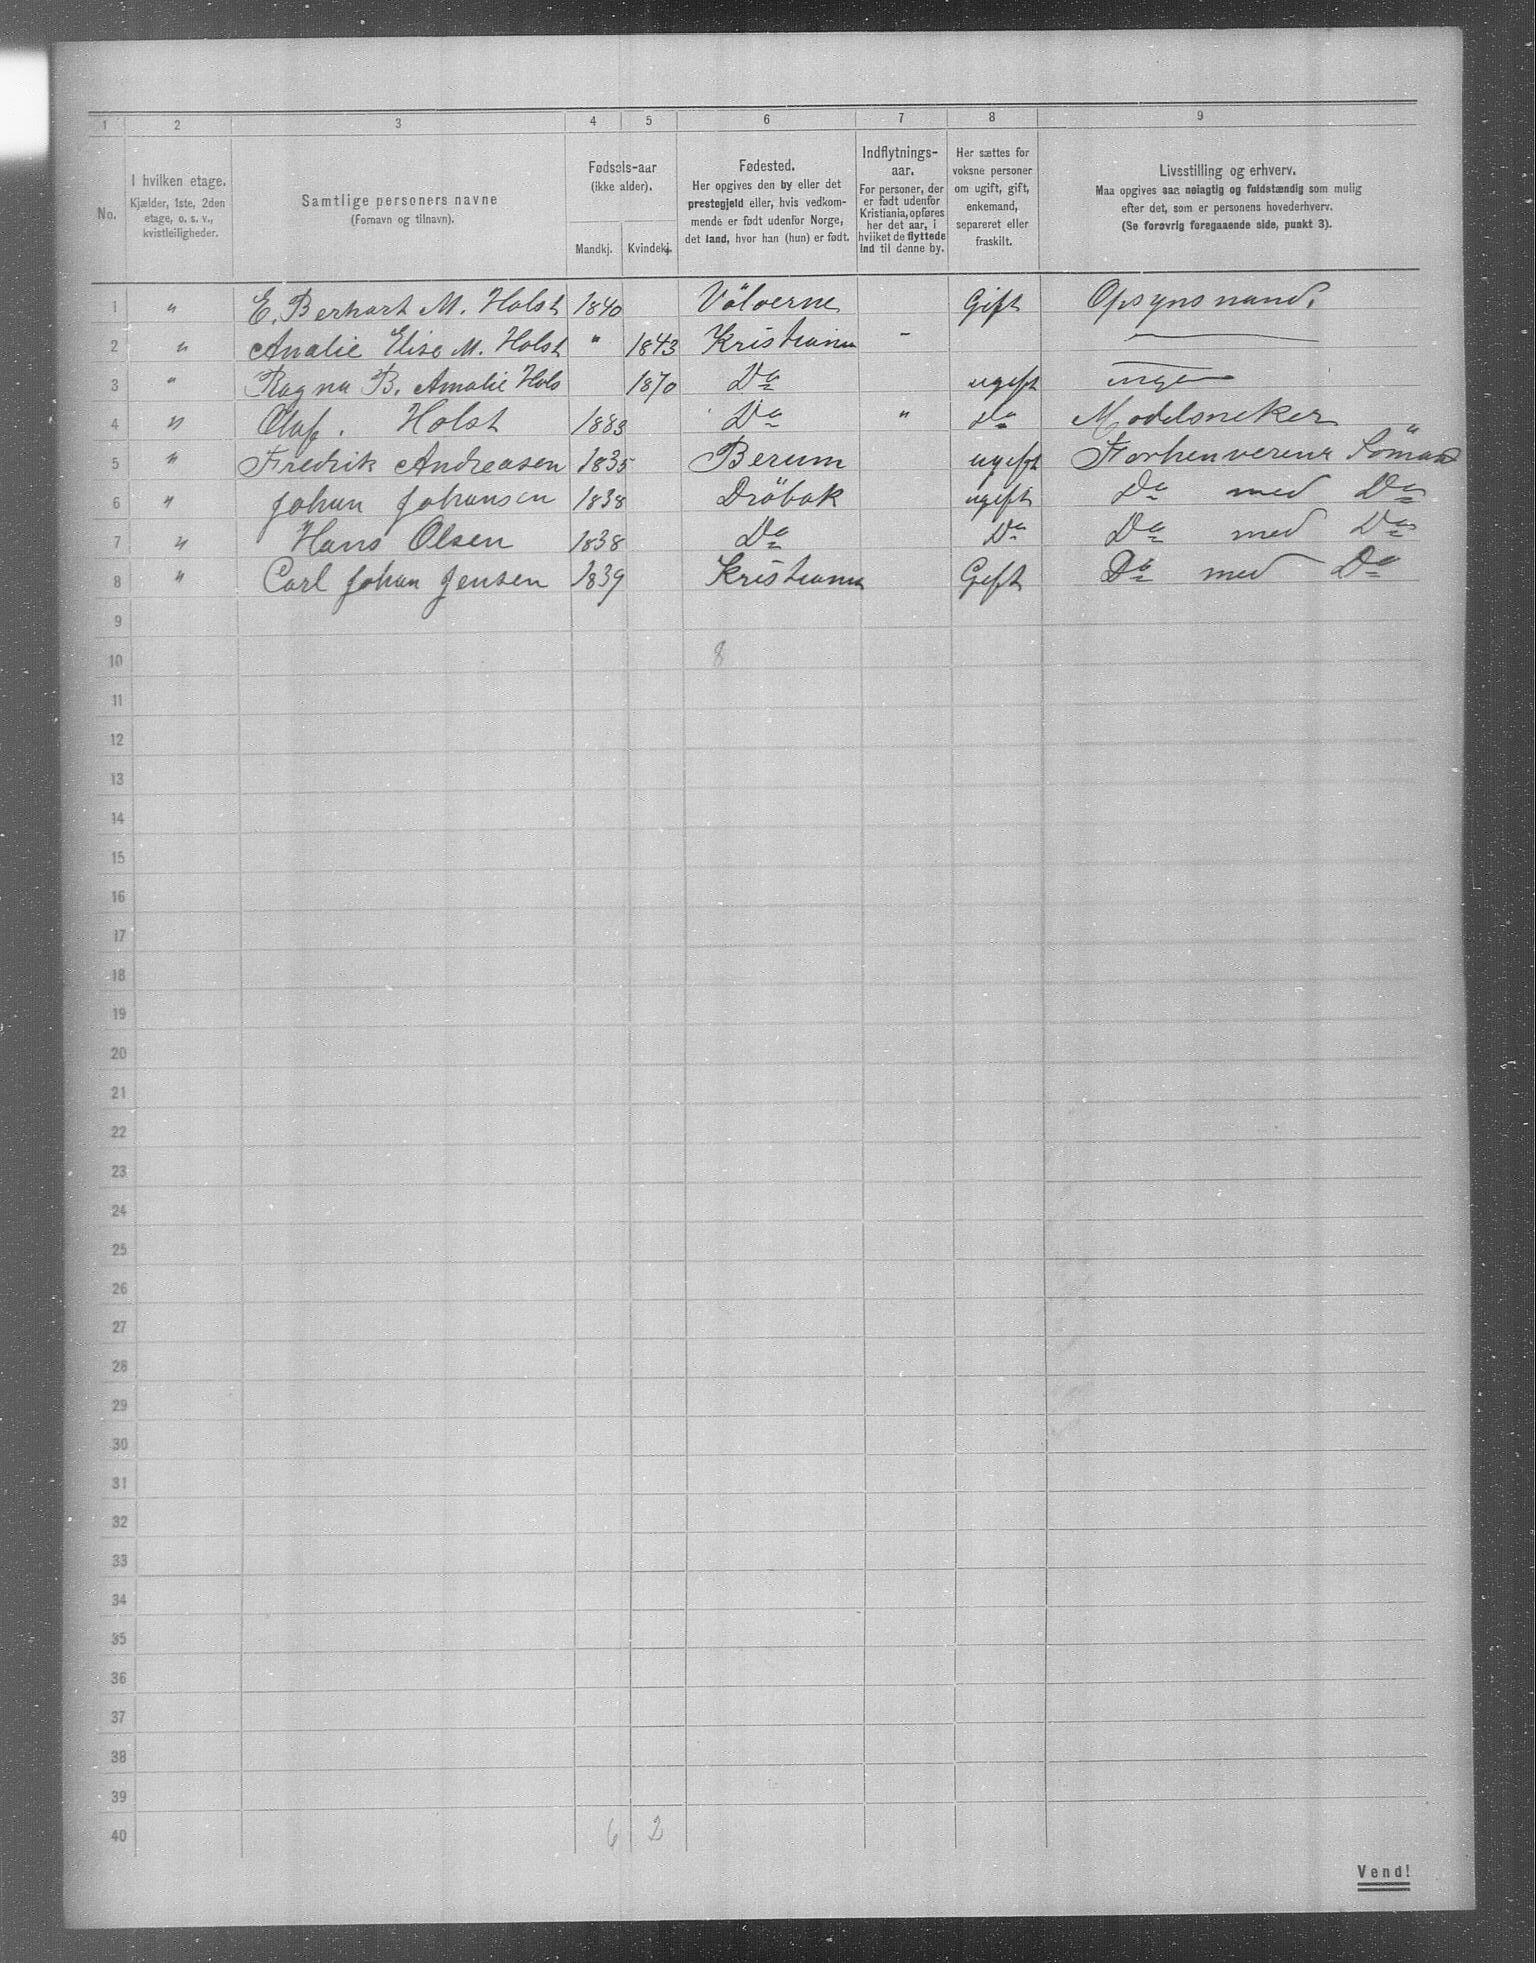 1 2 3 4 5 6 7 8 9
No.
I hvilken etage.
Kjælder, 1ste, 2den
etage, o. s. v.,
kvistleiligheder.
Samtlige personers navne
(Fornavn og tilnavn).
Fødsels-aar
(ikke alder).
Mandkj. Kvindekj.
Fødested.
Her opgives den by eller det
prestegjeld eller, hvis vedkom-
mende er født udenfor Norge,
det land, hvor han (hun) er født.
Indflytnings-
aar.
For personer, der
er født udenfor
Kristiania, opføres
her det aar, i
hvilket de flyttede
ind til denne by.
Her sættes for
voksne personer
om ugift, gift,
enkemand,
separeret eller
fraskilt.
Livsstilling og erhverv.
Maa opgives saa nøiagtig og fuldstændig som mulig
efter det, som er personens hovederhverv.
(Se forøvrig foregaaende side, punkt 3).
1 " E. Berhart M. Holst 1840 Gift Opsynsmand.
2 " Amalie Elise M. Holst " 1843 Kristiania -
3 " Ragna B. Amalie Hols 1870 Do ugift ingen
4 " Olaf. Holst 1883 Do " do Modelsneker
5 " Fredrik Andreasen 1835 Berum ugift Forhenverene Sömand
6 " Johan Johansen 1838 Dröbak ugift Do med Do
7 " Hans Olsen 1838 Do Do Do med Do
8 " Carl Johan Jensen 1839 Kristiania Gift Do med Do
9
10 8
11
12
13
14
15
16
17
18
19
20
21
22
23
24
25
26
27
28
29
30
31
32
33
34
35
36
37
38
39
40 6 2
Vend!